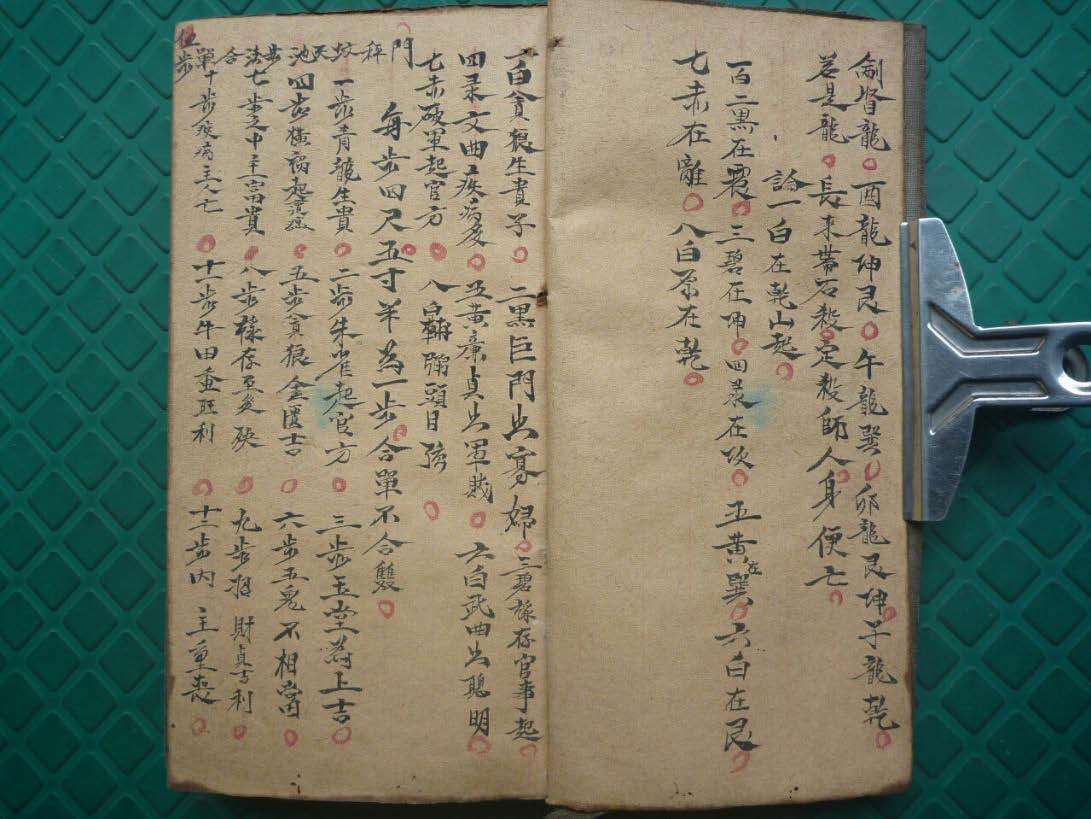 督龍酉龍坤艮午龍巽卯龍艮坤子龍乾
若是龍長末帶石殺定殺師人身便亡
論一白在乾山起
百二黑在震三碧在坤四彔在坎五黃在巽六白在艮
七赤在離八白原在乾
一白貪狼生貴子二黑巨門出寡婦三碧祿存官事起
四彔文曲疾病多五黃廉貞出軍戝六白武曲出聰明
七赤破軍起官方八白輔弼頭目
每步四尺五寸羊為一步合單不合雙
門
秤
坟天池步法合單步
一步青龍生貴二步朱雀起官方三步玉堂為上吉
四步橫禍起瘟五步貪狼金匱吉六步五鬼不相當
七步之中主富貴八步祿存至九步招財真吉利
十步疾病主人亡十一步牛田重旺利十二步內主重喪